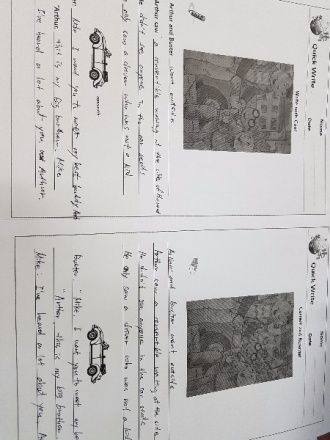 Quick Write
Name
Date
Write with Cue!
Arthur and Buster went outside.
Arthur saw a convertible waiting at the side of the road
He didn't see anyone in the car seats.
He only saw a driver who was not a kid
Mike, I want you to meet my best buddy
"Arthur, this is my big brother, Mike.
I've heard a lot about you, Arthur.
Quick Write
Name
Date
Correct and Rewrite!
Arthur and Buster went outside
Arthur saw a convertible waiting at the side
He didn't see anyone in the car seats
He only saw a driver who was not a kid
Buster: "Mike, I want you to meet my
"Arthur, this is my big brother
Mike: I've heard a lot about you,